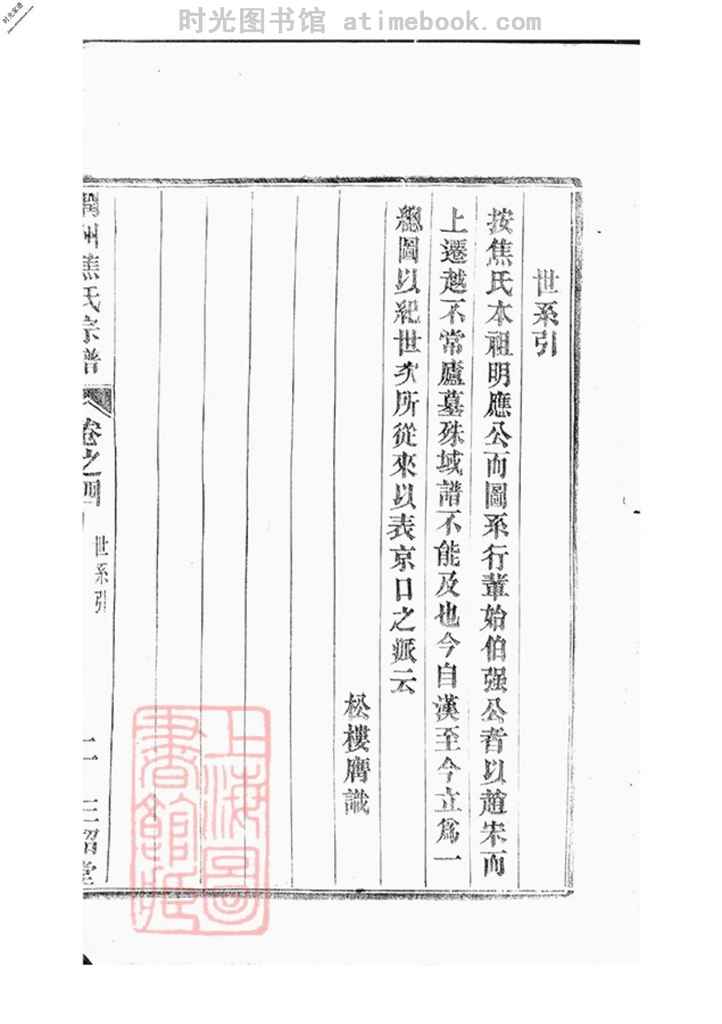 时光图书馆 atimebook.com
世系引
按焦氏本祖明應公而圖系行輩始伯强公者以趙宋而
上遷越不常廬墓殊域譜不能及也今自漢至今立爲一
總圖以紀世次所從來以表京口之派云
松樓膺識
潤州焦氏宗譜 卷之四 世系引 三召堂
上海圖
書館藏